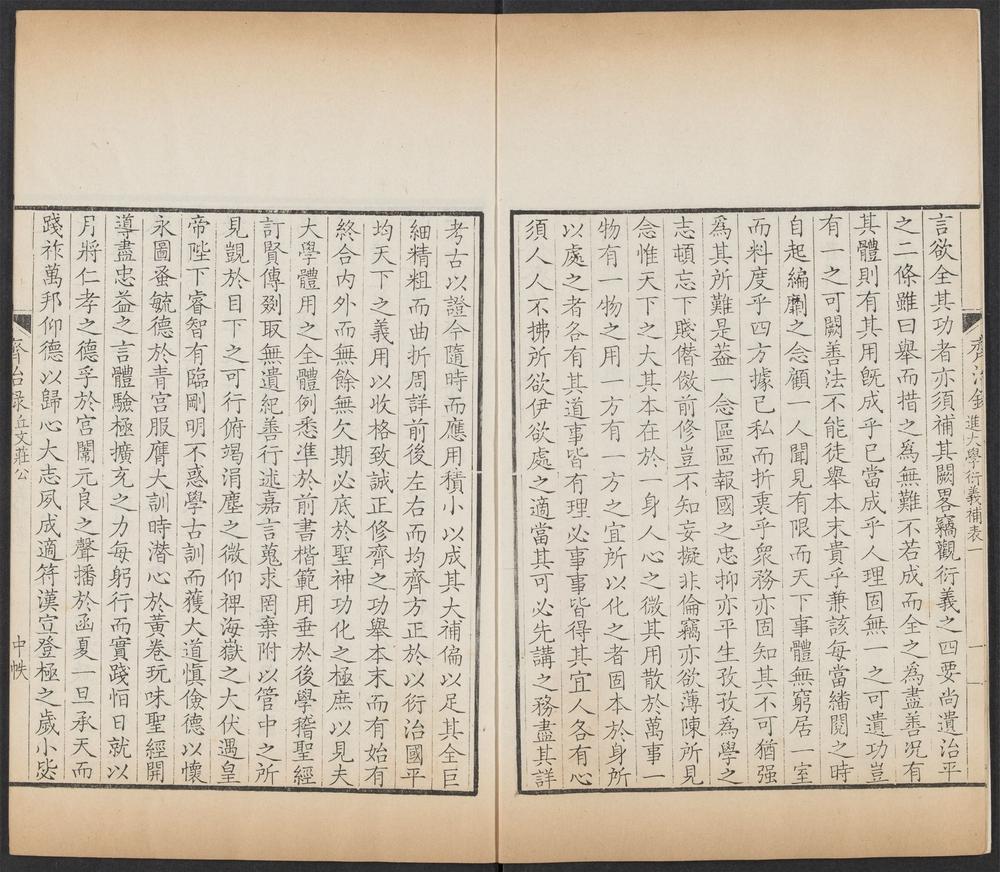 齊治錄 進大學衍義補表 一
言欲全其功者亦須補其闕畧竊觀衍義之四要尚遺治平
之二條雖曰舉而措之爲無難不若成而全之爲盡善况有
其體則有其用旣成乎已當成乎人理固無一之可遺功豈
有一之可闕善法不能徒舉本末貴乎兼該每當繙閱之時
自起編劘之念顧一人聞見有限而天下事體無窮居一室
而料度乎四方據已私而折衷乎衆務亦固知其不可猶强
爲其所難是葢一念區區報國之忠抑亦平生孜孜爲學之
志頓忘下賤僣倣前修豈不知妄擬非倫竊亦欲薄陳所見
念惟天下之大其本在於一身人心之微其用散於萬事一
物有一物之用一方有一方之宜所以化之者固本於身所
以處之者各有其道事皆有理必事事皆得其宜人各有心
須人人不拂所欲伊欲處之適當其可必先講之務盡其詳
考古以證今隨時而應用積小以成其大補偏以足其全巨
細精粗而曲折周詳前後左右而均齊方正於以衍治國平
均天下之義用以收格致誠正修齊之功舉本末而有始有
終合内外而無餘無欠期必底於聖神功化之極庶以見夫
大學體用之全體例悉準於前書楷範用垂於後學稽聖經
訂賢傳剟取無遺紀善行述嘉言蒐求罔棄附以管中之所
見覬於目下之可行俯竭涓塵之微仰裨海嶽之大伏遇皇
帝陛下睿智有臨剛明不惑學古訓而獲大道愼儉德以懷
永圖蚤毓德於青宫服膺大訓時潛心於黃卷玩味聖經開
導盡忠益之言體驗極擴充之力每躬行而實踐恒日就以
月將仁孝之德孚於宫闈元良之聲播於函夏一旦承天而
踐祚萬邦仰德以歸心大志夙成適符漢宣登極之歲小毖
齊治錄 丘文莊公 中帙